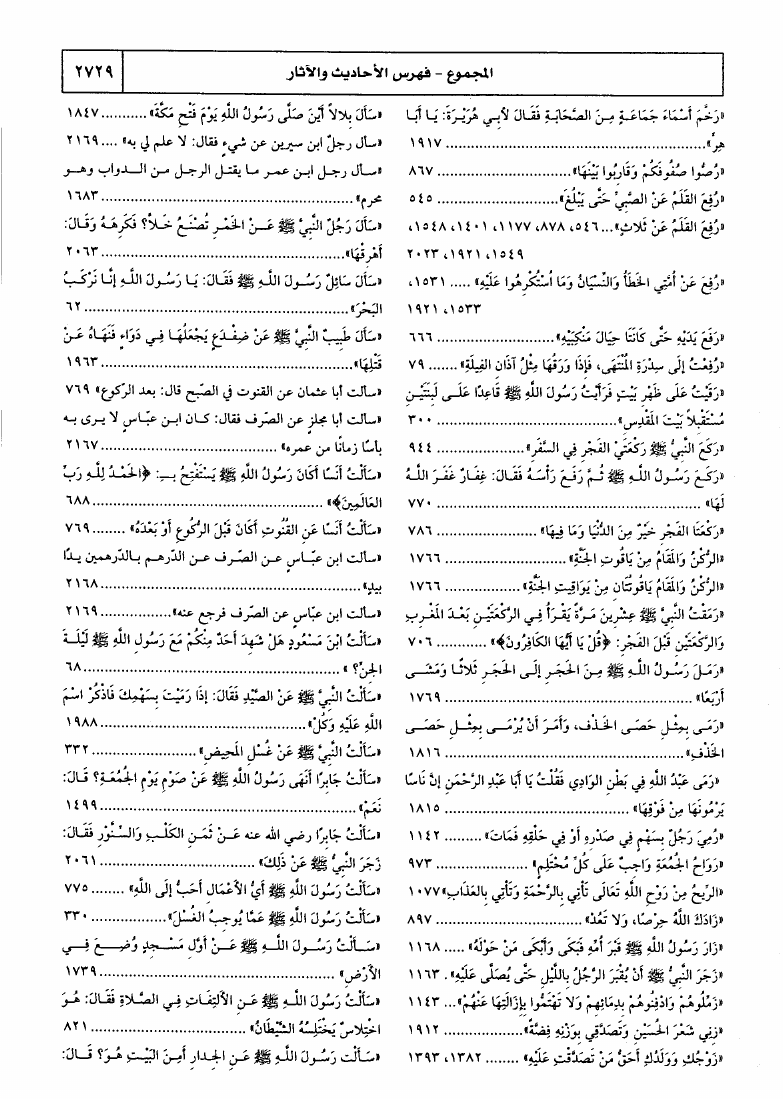 المجموع - فهرس الأحاديث والآثار
٢٧٢٩
«رَخَّمَ أَسْمَاءَ جَمَاعَةٍ مِنَ الصَّحَابَةِ فَقَالَ لأَبِي هُرَيْرَةَ: يَا أَبَا
هِرٍّ»................................................ ١٩١٧
«رُصُّوا صُفُوفَكُمْ وَقَارِبُوا بَيْنَهَا»........................ ٨٦٧
«رُفِعَ القَلَمُ عَنْ الصَّبِيِّ حَتَّى يَبْلُغَ»...................... ٥٤٥
«رُفِعَ القَلَمُ عَنْ ثَلاثٍ»...٥٤٦، ٨٧٨، ١١٧٧، ١٤٠١، ١٥٤٨،
١٥٤٩، ١٩٢١، ٢٠٢٣
«رُفِعَ عَنْ أُمَّتِي الخَطَأُ وَالنِّسْيَانُ وَمَا اُسْتُكْرِهُوا عَلَيْهِ» ..... ١٥٣١،
١٥٣٣، ١٩٢١
«رَفَعَ يَدَيْهِ حَتَّى كَانَتَا حِيَالَ مَنْكِبَيْهِ»..................... ٦٦٦
«رُفِعْتُ إلَى سِدْرَةِ المُنْتَهَى، فَإِذَا وَرَقُهَا مِثْلُ آذَانِ الفِيلَةِ» ....... ٧٩
«رَقَيْتُ عَلَى ظَهْرِ بَيْتٍ فَرَأَيْتُ رَسُولَ اللَّهِ ﷺ قَاعِدًا عَلَى لَبِنَتَيْنِ
مُسْتَقْبِلاً بَيْتَ المَقْدِسِ»................................ ٣٠٠
«رَكَعَ النَّبِيُّ ﷺ رَكْعَتَيْ الفَجْرِ فِي السَّفَرِ».................... ٩٤٤
«رَكَعَ رَسُولُ اللَّهِ ﷺ ثُمَّ رَفَعَ رَأْسَهُ فَقَالَ: غِفَارٌ غَفَرَ اللَّهُ
لَهَا» ................................................ ٧٧٠
«رَكْعَتَا الفَجْرِ خَيْرٌ مِنَ الدُّنْيَا وَمَا فِيهَا»....................... ٧٨٦
«الرُّكْنُ وَالمَقَامُ مِنْ يَاقُوتِ الجَنَّةِ» ........................ ١٧٦٦
«الرُّكْنُ وَالمَقَامُ يَاقُوتَتَانِ مِنْ يَوَاقِيتِ الجَنَّةِ» ................ ١٧٦٦
«رَمَقْتُ النَّبِيَّ ﷺ عِشْرِينَ مَرَّةً يَقْرَأُ فِي الرَّكْعَتَيْنِ بَعْدَ المَغْرِبِ
وَالرَّكْعَتَيْنِ قَبْلَ الفَجْرِ: ﴿قُلْ يَا أَيُّهَا الكَافِرُونَ﴾» ............ ٧٠٦
«رَمَلَ رَسُولُ اللَّهِ ﷺ مِنَ الحَجَرِ إلَى الحَجَرِ ثَلاثًا وَمَشَى
أَرْبَعًا»............................................... ١٧٦٩
«رَمَى بِمِثْلِ حَصَى الخَذْفِ، وَأَمَرَ أَنْ يُرْمَى بِمِثْلِ حَصَى
الخَذْفِ»............................................. ١٨١٦
«رَمَى عَبْدُ اللَّهِ فِي بَطْنِ الوَادِي فَقُلْتُ يَا أَبَا عَبْدِ الرَّحْمَنِ إنَّ نَاسًا
يَرْمُونَهَا مِنْ فَوْقِهَا» .................................. ١٨١٥
«رُمِيَ رَجُلٌ بِسَهْمٍ فِي صَدْرِهِ أَوْ فِي حَلْقِهِ فَمَاتَ» ......... ١١٤٢
«رَوَاحُ الجُمُعَةِ وَاجِبٌ عَلَى كُلِّ مُحْتَلِمٍ» ................... ٩٧٣
«الرِّيحُ مِنْ رَوْحِ اللَّهِ تَعَالَى تَأْتِي بِالرَّحْمَةِ وَتَأْتِي بِالعَذَابِ»١٠٧٧
«زَادَكَ اللَّهُ حِرْصًا، وَلا تَعُدْ».............................. ٨٩٧
«زَارَ رَسُولُ اللَّهِ ﷺ قَبْرَ أُمِّهِ فَبَكَى وَأَبْكَى مَنْ حَوْلَهُ» ..... ١١٦٨
«زَجَرَ النَّبِيُّ ﷺ أَنْ يُقْبَرَ الرَّجُلُ بِاللَّيْلِ حَتَّى يُصَلَّى عَلَيْهِ». ١١٦٣
«زَمِّلُوهُمْ وَادْفِنُوهُمْ بِدِمَائِهِمْ وَلا تَهْتَمُّوا بِإِزَالَتِهَا عَنْهُمْ»... ١١٤٣
«زِنِي شَعْرَ الحُسَيْنِ وَتَصَدَّقِي بِوَزْنِهِ فِضَّةً»................ ١٩١٢
«زَوْجُكِ وَوَلَدُكِ أَحَقُّ مَنْ تَصَدَّقْتِ عَلَيْهِ» ........ ١٣٨٢، ١٣٩٣
«سَأَلَ بِلالاً أَيْنَ صَلَّى رَسُولُ اللَّهِ يَوْمَ فَتْحِ مَكَّةَ»........... ١٨٤٧
«سأل رجلٌ ابن سيرين عن شيءٍ فقال: لا علم لي به» .... ٢١٦٩
«سأل رجل ابن عمر ما يقتل الرجل من الدواب وهو
محرم» .............................................. ١٦٨٣
«سَأَلَ رَجُلٌ النَّبِيَّ ﷺ عَنْ الخَمْرِ تُصْنَعُ خَلاًّ؟ فَكَرِهَهُ وَقَالَ:
أَهْرِقْهَا»............................................ ٢٠٦٣
«سَأَلَ سَائِلٌ رَسُولَ اللَّهِ ﷺ فَقَالَ: يَا رَسُولَ اللَّهِ إنَّا نَرْكَبُ
البَحْرَ»................................................ ٦٢
«سَأَلَ طَبِيبٌ النَّبِيَّ ﷺ عَنْ ضِفْدَعٍ يَجْعَلُهَا فِي دَوَاءٍ فَنَهَاهُ عَنْ
قَتْلِهَا».............................................. ١٩٦٣
«سألت أبا عثمان عن القنوت في الصّبح قال: بعد الرّكوع» ٧٦٩
«سألت أبا مجلزٍ عن الصّرف فقال: كان ابن عبّاسٍ لا يرى به
بأسًا زمانًا من عمره»................................ ٢١٦٧
«سَأَلْتُ أَنَسًا أَكَانَ رَسُولُ اللَّهِ ﷺ يَسْتَفْتِحُ بـ: ﴿الحَمْدُ لِلَّهِ رَبِّ
العَالَمِينَ﴾» .......................................... ٦٨٨
«سَأَلْتُ أَنَسًا عَنِ القُنُوتِ أَكَانَ قَبْلَ الرُّكُوعِ أَوْ بَعْدَهُ» ........ ٧٦٩
«سألت ابن عبّاسٍ عن الصّرف عن الدّرهم بالدّرهمين يدًا
بيدٍ»............................................... ٢١٦٨
«سألت ابن عبّاسٍ عن الصّرف فرجع عنه»................ ٢١٦٩
«سَأَلْتُ ابْنَ مَسْعُودٍ هَلْ شَهِدَ أَحَدٌ مِنْكُمْ مَعَ رَسُولِ اللَّهِ ﷺ لَيْلَةَ
الجِنِّ؟ » ............................................... ٦٨
«سَأَلْتُ النَّبِيَّ ﷺ عَنْ الصَّيْدِ فَقَالَ: إذَا رَمَيْتَ بِسَهْمِكَ فَاذْكُرْ اسْمَ
اللَّهِ عَلَيْهِ وَكُلْ»...................................... ١٩٨٨
«سَأَلْتُ النَّبِيَّ ﷺ عَنْ غُسْلِ المَحِيضِ»...................... ٣٣٢
«سَأَلْتُ جَابِرًا أَنَهَى رَسُولُ اللَّهِ ﷺ عَنْ صَوْمِ يَوْمِ الجُمُعَةِ؟ قَالَ:
نَعَمْ».............................................. ١٤٩٩
«سَأَلْتُ جَابِرًا رضي الله عنه عَنْ ثَمَنِ الكَلْبِ وَالسِّنَّوْرِ فَقَالَ:
زَجَرَ النَّبِيُّ ﷺ عَنْ ذَلِكَ»............................. ٢٠٦١
«سَأَلْتُ رَسُولَ اللَّهِ ﷺ أَيُّ الأَعْمَالِ أَحَبُّ إلَى اللَّهِ» ......... ٧٧٥
«سَأَلْتُ رَسُولَ اللَّهِ ﷺ عَمَّا يُوجِبُ الغُسْلَ»................. ٣٣٠
«سَأَلْتُ رَسُولَ اللَّهِ ﷺ عَنْ أَوَّلِ مَسْجِدٍ وُضِعَ فِي
الأَرْضِ» ........................................... ١٧٣٩
«سَأَلْتُ رَسُولَ اللَّهِ ﷺ عَنِ الالْتِفَاتِ فِي الصَّلاةِ فَقَالَ: هُوَ
اخْتِلاسٌ يَخْتَلِسُهُ الشَّيْطَانُ» ............................. ٨٢١
«سَأَلْت رَسُولَ اللَّهِ ﷺ عَنِ الجِدَارِ أَمِنَ البَيْتِ هُوَ؟ قَالَ: